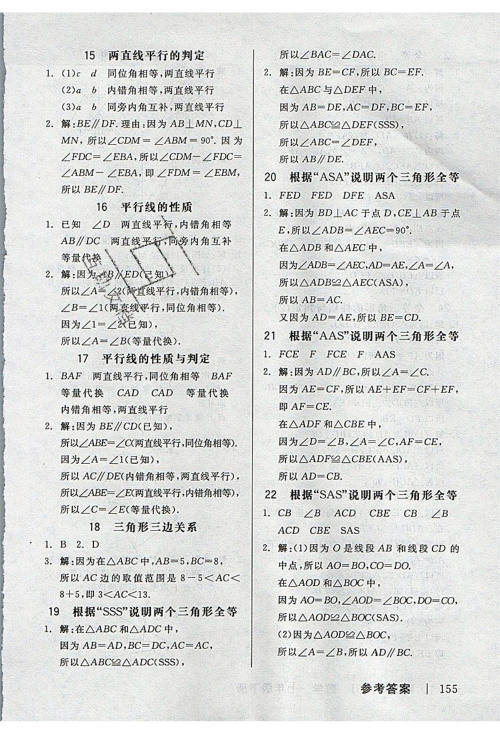 15 两直线平行的判定
1. (1)c d 同位角相等,两直线平行
(2)a b 内错角相等,两直线平行
(3)a b 同旁内角互补,两直线平行
2. 解:BE∥DF.理由:因为AB⊥MN,CD⊥
MN,所以∠CDM=∠ABM=90°.因为
∠FDC=∠EBA,所以∠CDM-∠FDC=
∠ABM-∠EBA,即∠FDM=∠EBM,
所以BE∥DF.
16 平行线的性质
1. 已知 ∠D 两直线平行,内错角相等
AB∥DC 两直线平行,同旁内角互补
等量代换
2. 解:因为AB∥ED(已知),
所以∠A=∠2(两直线平行,内错角相等),
∠B=∠1(两直线平行,同位角相等).
因为∠1=∠2(已知),
所以∠A=∠B(等量代换).
17 平行线的性质与判定
1. BAF 两直线平行,同位角相等 BAF
等量代换 CAD CAD 等量代换
内错角相等,两直线平行
2. 解:因为BE∥CD(已知),
所以∠ABE=∠C(两直线平行,同位角相等).
因为∠A=∠1(已知),
所以AC∥DE(内错角相等,两直线平行),
所以∠ABE=∠E(两直线平行,内错角相等),
所以∠C=∠E(等量代换).
18 三角形三边关系
1. B 2. D
3. 解:因为在△ABC中,AB=5,BC=8,
所以AC边的取值范围是8-5<AC<
8+5,即3<AC<13.
19 根据“SSS”说明两个三角形全等
1. 解:在△ABC和△ADC中,
因为AB=AD,BC=DC,AC=AC,
所以△ABC≌△ADC(SSS),
所以∠BAC=∠DAC.
2. 解:因为BE=CF,所以BC=EF.
在△ABC与△DEF中,
因为AB=DE,AC=DF,BC=EF,
所以△ABC≌△DEF(SSS),
所以∠ABC=∠DEF,
所以AB∥DE.
20 根据“ASA”说明两个三角形全等
1. FED FED DFE ASA
2. 解:因为BD⊥AC于点D,CE⊥AB于点
E,所以∠ADB=∠AEC=90°.
在△ADB和△AEC中,
因为∠ADB=∠AEC,AD=AE,∠A=∠A,
所以△ADB≌△AEC(ASA),
所以AB=AC.
又因为AD=AE,所以BE=CD.
21 根据“AAS”说明两个三角形全等
1. FCE F FCE F AAS
2. 解:因为AD∥BC,所以∠A=∠C.
因为AE=CF,所以AE+EF=CF+EF,
即AF=CE.
在△ADF和△CBE中,
因为∠D=∠B,∠A=∠C,AF=CE,
所以△ADF≌△CBE(AAS),
所以AD=CB.
22 根据“SAS”说明两个三角形全等
1. CB ∠B ACD CBE CB ∠B
ACD CBE SAS
2. 解:(1)因为O是线段AB和线段CD的
中点,所以AO=BO,CO=DO.
在△AOD和△BOC中,
因为AO=BO,∠AOD=∠BOC,DO=CO,
所以△AOD≌△BOC(SAS).
(2)因为△AOD≌△BOC,
所以∠A=∠B,
所以AD∥BC.
参考答案 | 155